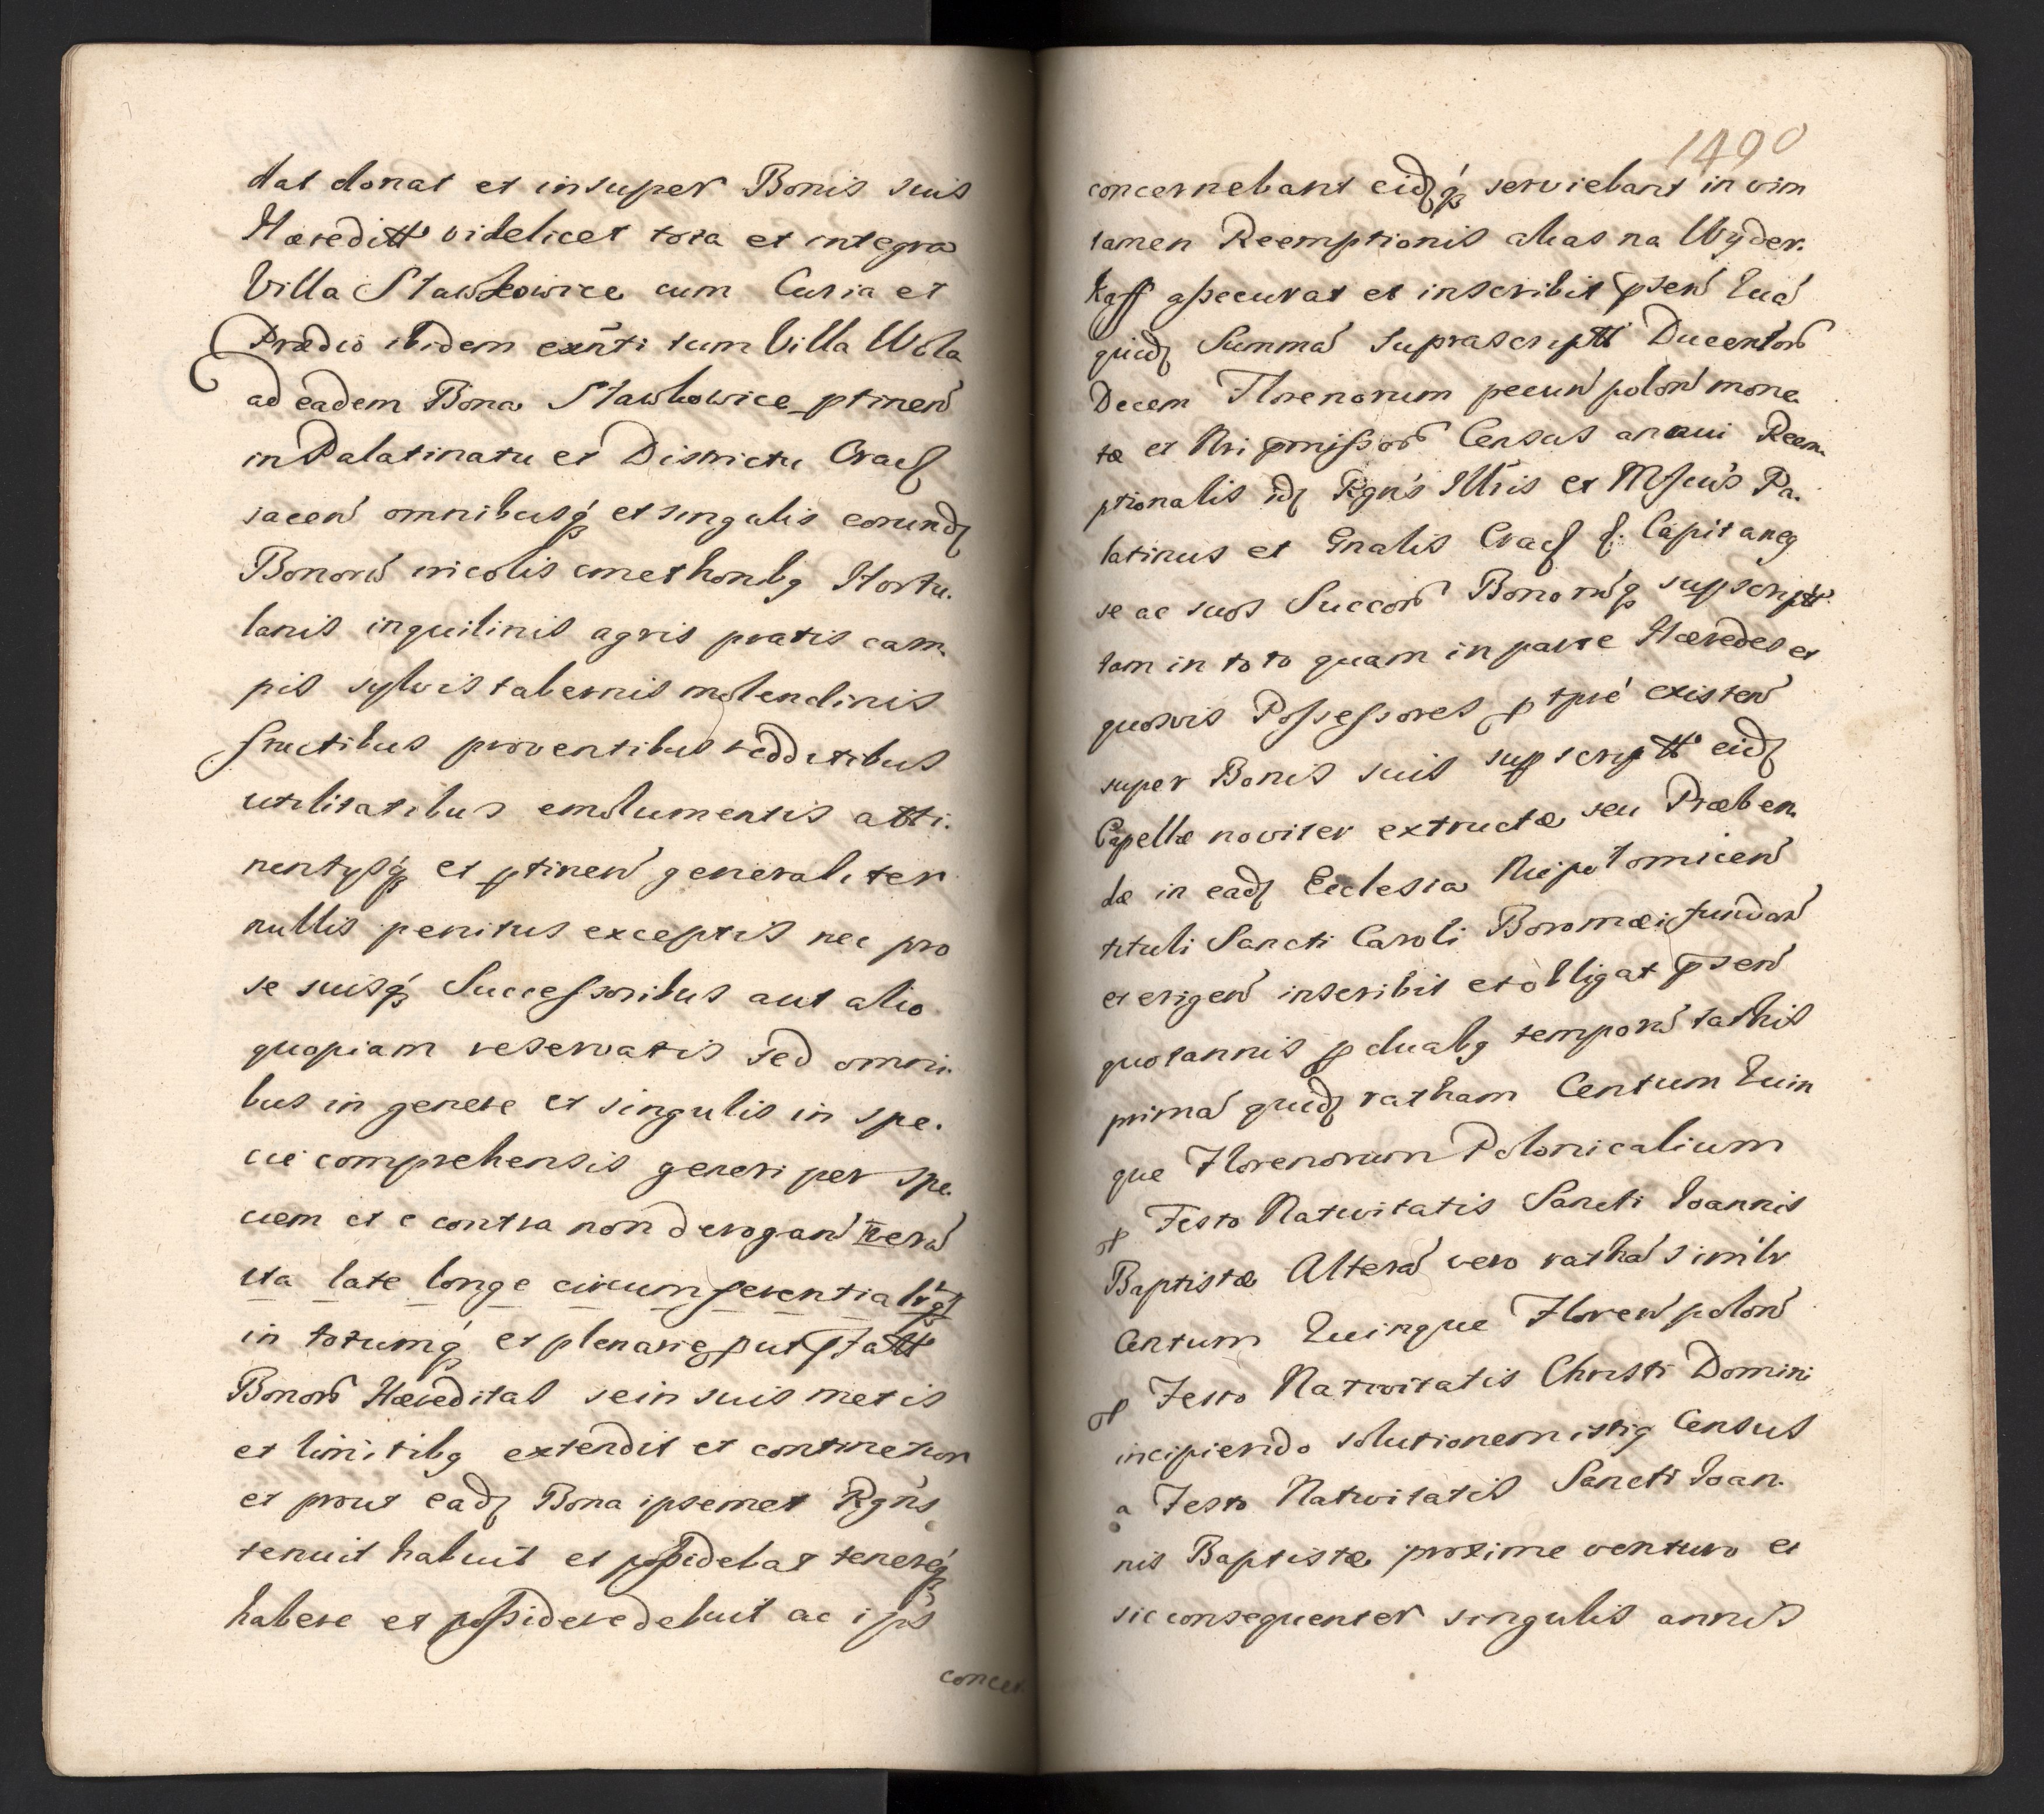 dat donat et insuper Bonis suis
Hæreditt videlicet tota et integra
Villa Stawkowice cum Curia et
Prædio ibidem exñti tum Villa Wola
ad eadem Bona Stawkowice ptinen
in Palatinatu et Districtu Crac
jacen omnibusq et singulis eorund
Bonorũ incolis cmethonibq Hortu.
lanis inquilinis agris pratis cam.
pis sylvis tabernis molendinis
fructibus proventibus redditibus
utilitatibus emolumentis atti.
nentysq et ptinen generaliter
nullis penitus exceptis nec pro
se suisq Successoribus aut alio
quopiam reservatis sed omni.
bus in genere et singulis in spe.
cie comprehensis generi per spe.
ciem et e contra non derogan
ita late longe circumferentialrq
in totumq et plenarie put statt
Bonorũ Hæreditas se in suis metis
et limitibq extendit et continetur
et prout ead Bona ipsemet Rgñs
tenuit habuit et possidebat tenereq
habere et possidere debuit ac ips
concer
1490
concernebant eidq serviebant in vim
tamen Reemptionis alias na Wyder.
Kaff assecurat et inscribit psen Qua
quid Summa suprascriptt Ducentorũ
Decem Florenorum pecun polon mone.
tæ et Nri pmissorũ Census annui Reem.
ptionalis id Rgñs Illris et Mgcus Pa.
latinus et Gnalis Crac s. Capitaneq
se ac suos Succorũ Bonorũq supscriptt
tam in toto quam in parte Hæredes et
quosvis Possessores p tpre existen
super Bonis suis supscriptt eid
Capellæ noviter extructæ seu Præben.
dæ in ead Ecclesia Niepołomicen
tituli Sancti Caroli Boromæi fundan
et erigen inscribit et obligat psen
quotannis p duabq temporũ rathis
prima quid ratham Centum Quin
que Florenorum Polonicalium
p Festo Nativitatis Sancti Joannis
Baptistæ Altera vero ratha similr
Centum Quinque Floren polon
p Festo Nativitatis Christi Domini
incipiendo solutionem istiq Census
a Festo Nativitatis Sancti Joan.
nis Baptistæ proxime venturo et
sic consequenter singulis annis